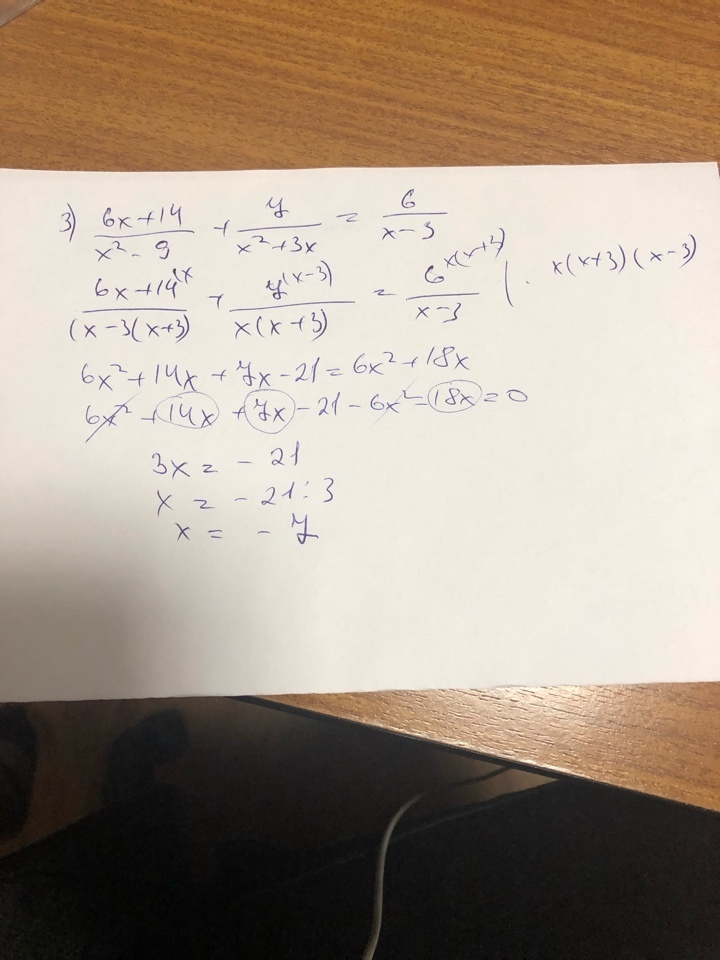 3) (6x+14)/(x²-9) + 7/(x²+3x) = 6/(x-3)
(6x+14^(x)/((x-3(x+3)) + 7^(x-3)/(x(x+3)) = 6^x(x+3)/(x-3) | · x(x+3)(x-3)
6x²+14x+7x-21=6x²+18x
6x²+14x+7x-21-6x²-18x=0
3x = -21
x = -21:3
x = -7